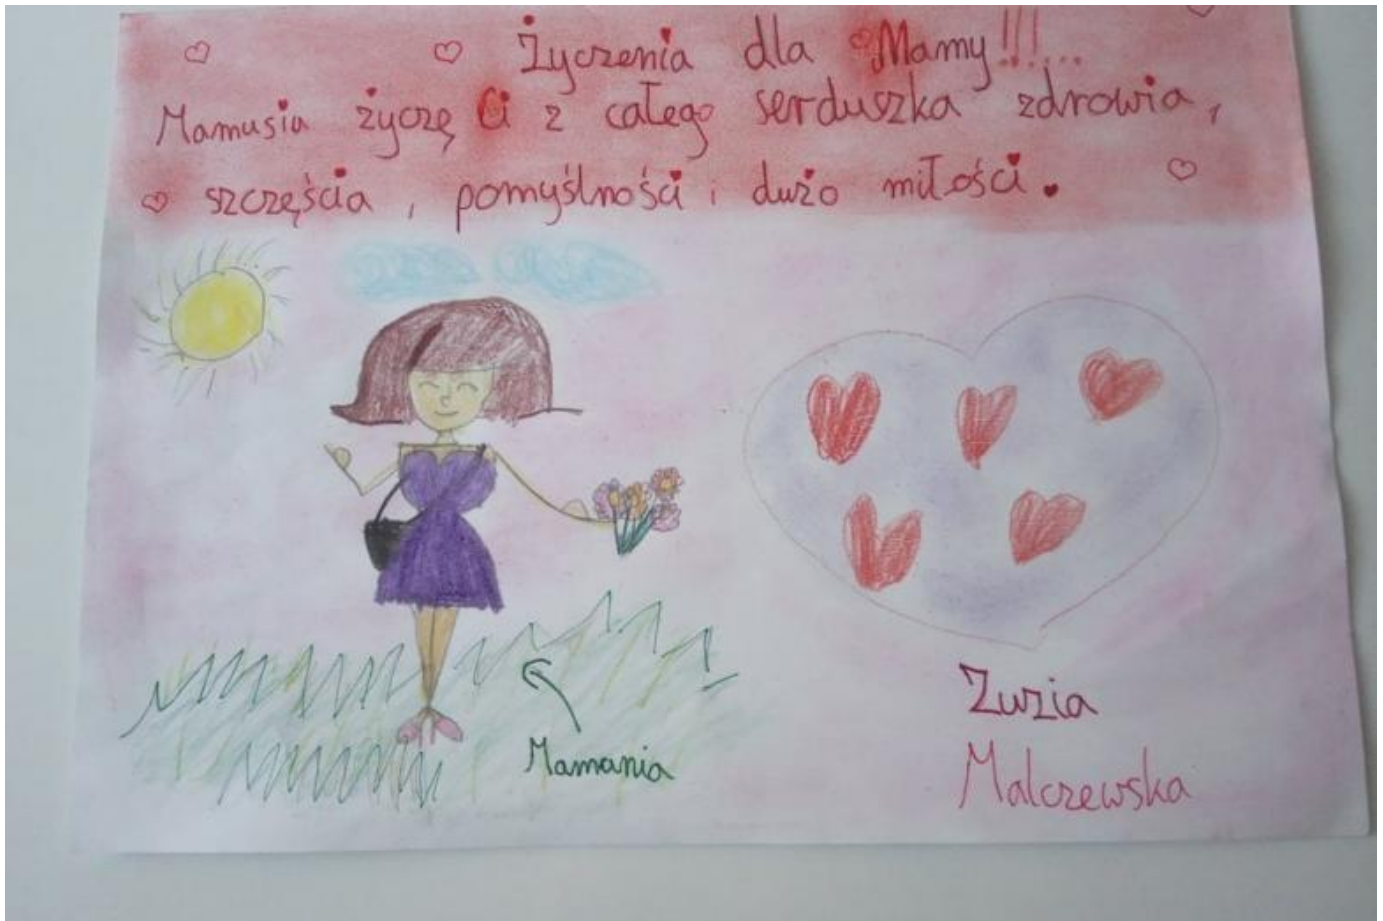 Życzenia dla Mamy!!!...
Mamusia życzę Ci z całego serduszka zdrowia,
szczęścia, pomyślności i dużo miłości.
Mamania
Zuzia
Malczewska